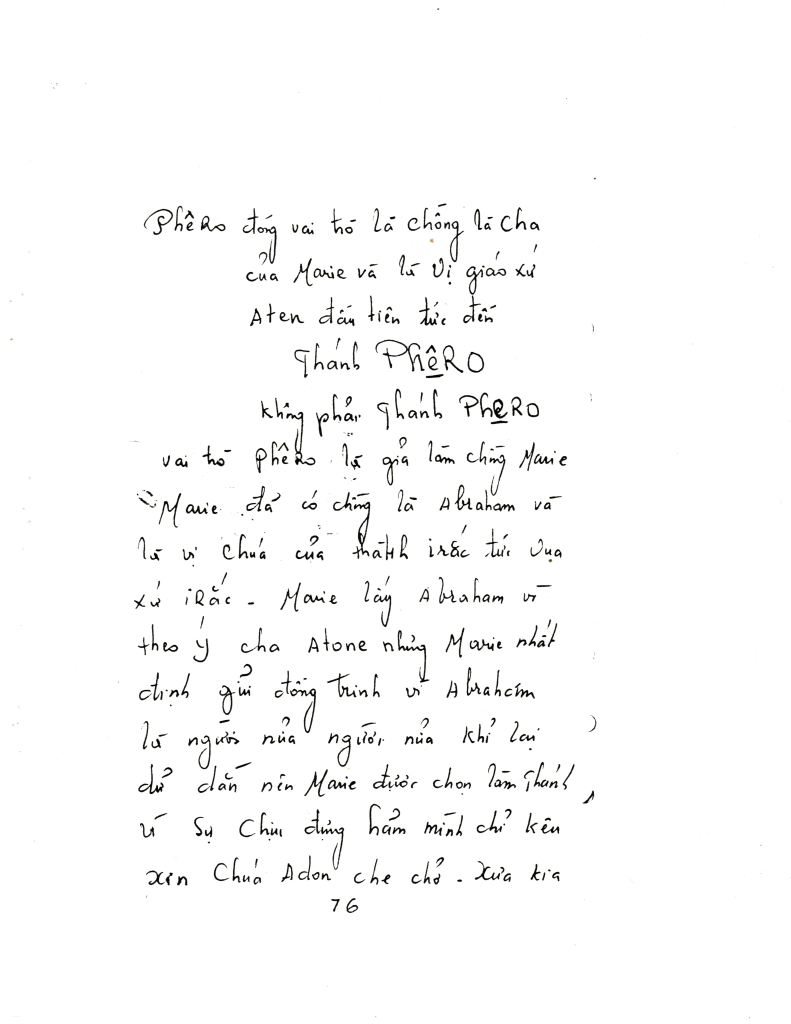 Phêro đóng vai trò là chồng là cha
của Marie và là vị giáo xứ
Aten đầu tiên tức đền
Thánh PHêRO
không phải Thánh PHeRO
vai trò Phêro là giả làm chồng Marie
Marie đả có chồng là Abraham và
là vị chúa của thành irắc tức vua
xứ iRắc - Marie lấy Abraham vì
theo ý cha Atone nhưng Marie nhất
định gửi đồng trinh vì Abraham
là người nửa người nửa khỉ lại
dử dằn nên Marie được chọn làm Thánh
vì sự chịu đựng hẩm mình chỉ kêu
xin Chúa Adon che chở - Xưa kia
76